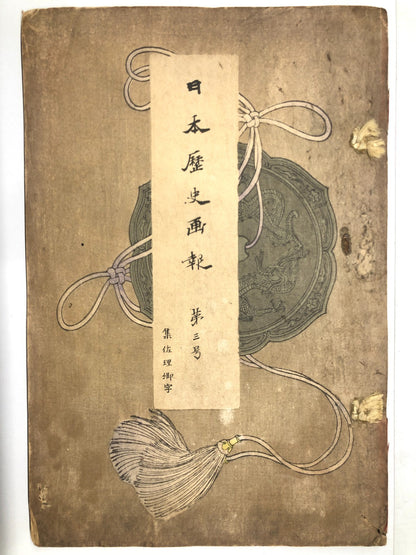 日本歴史画報
第三号
集佐理卿字